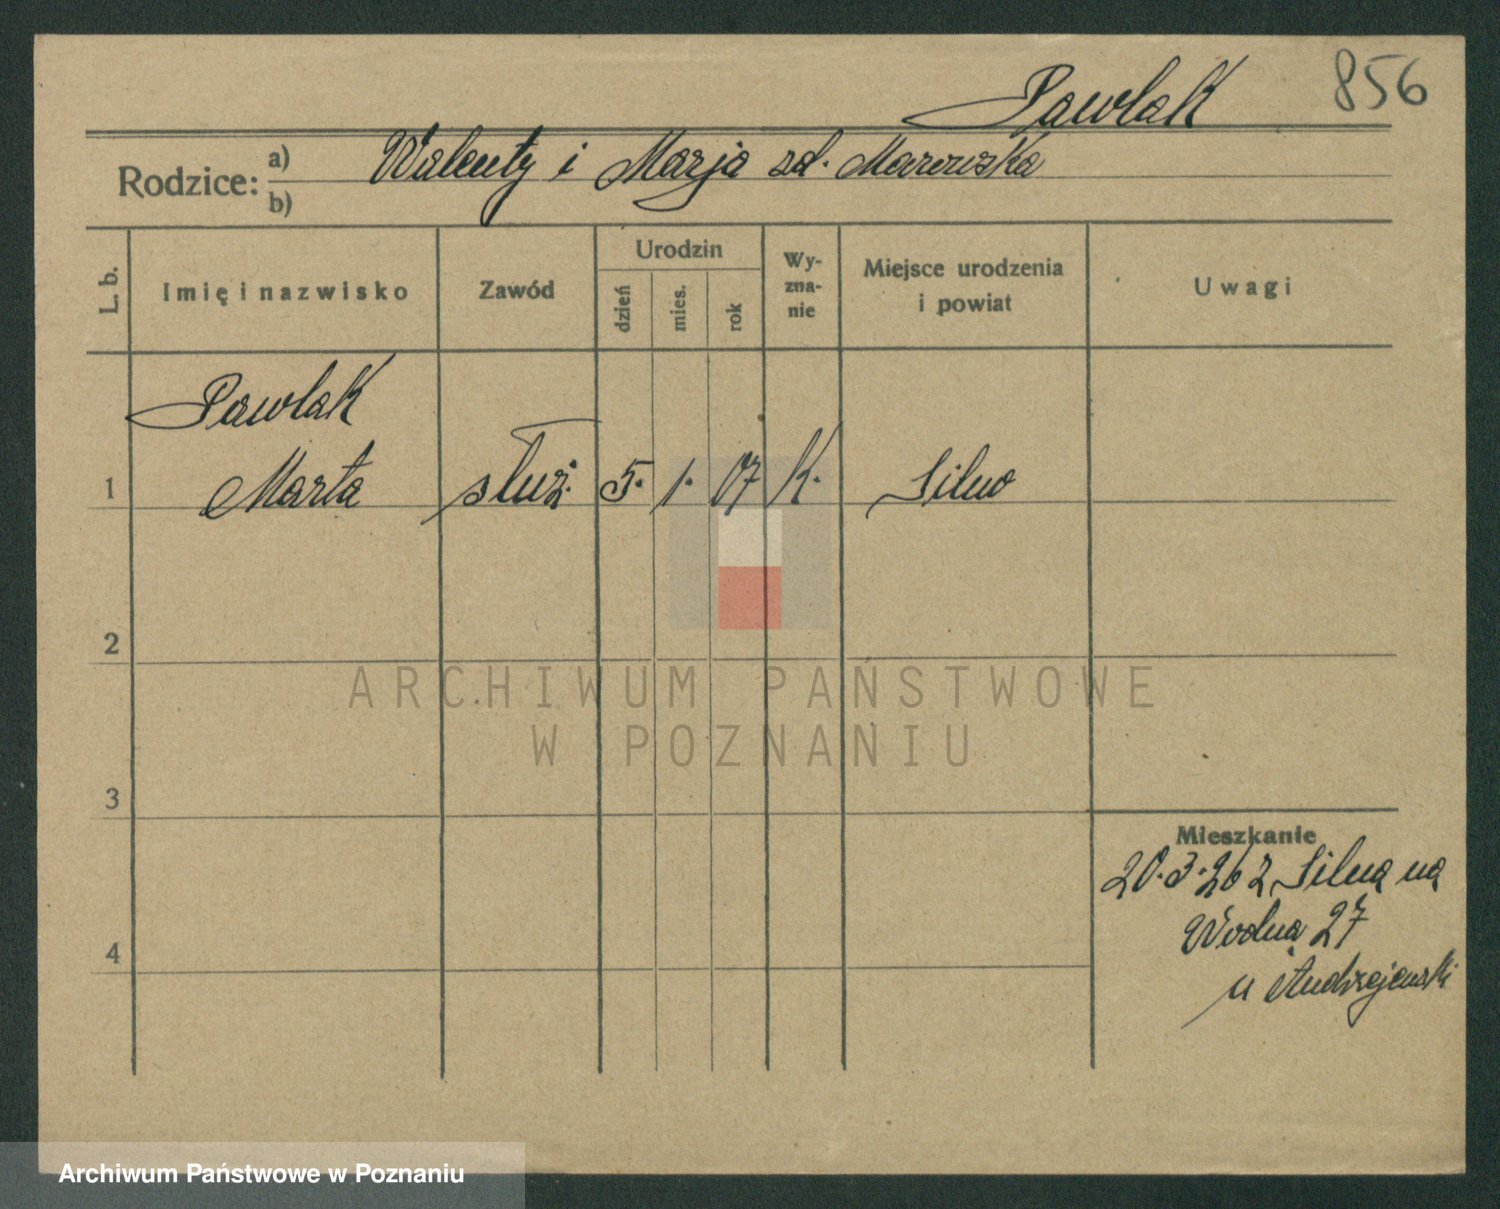 856
Pawlak
Rodzice: a) Walenty i Marja zd.
b)
L. b. Imię i nazwisko Zawód Urodzin dzień mies. rok Wyznanie Miejsce urodzenia i powiat Uwagi
Pawlak
1 Marta służ. 5. 1. 07 K. Silno
2
ARCHIWUM PAŃSTWOWE
W POZNANIU
3
Mieszkanie
20.3.26 z Silna na
Wodną 27
4
u Andrzejewski
Archiwum Państwowe w Poznaniu